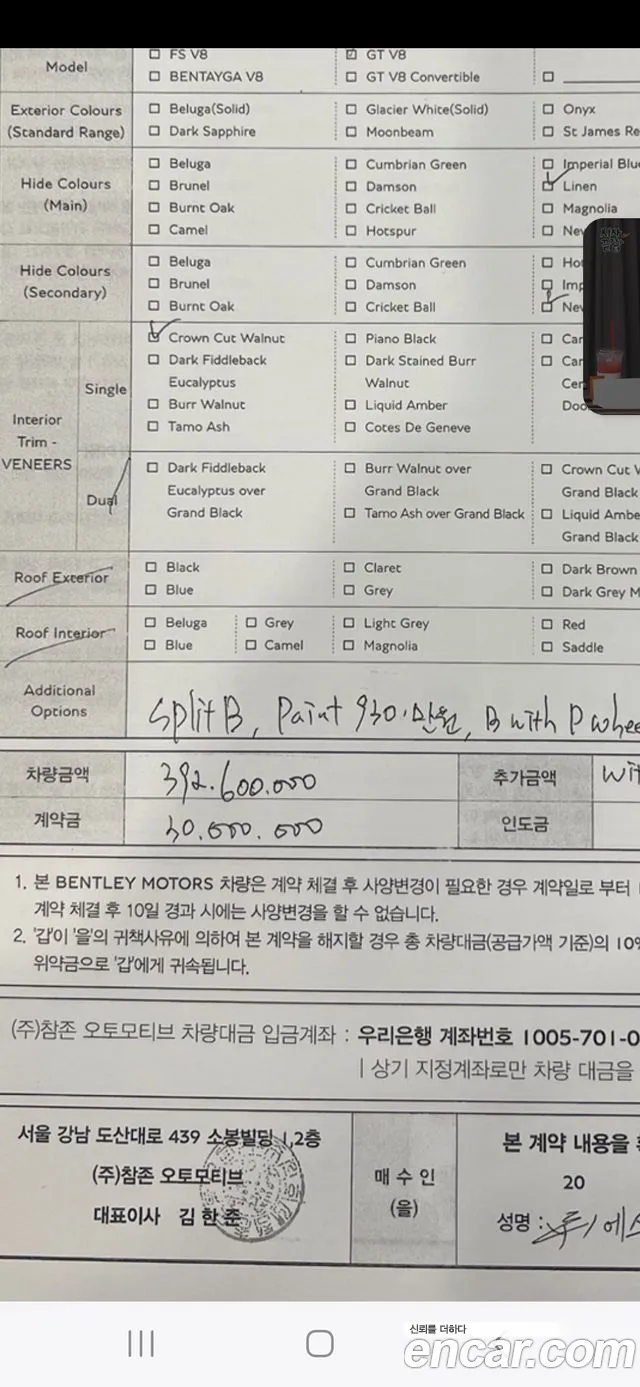 Model
☐ FS V8 ☑ GT V8
☐ BENTAYGA V8 ☐ GT V8 Convertible ☐
Exterior Colours (Standard Range)
☐ Beluga(Solid) ☐ Glacier White(Solid) ☐ Onyx
☐ Dark Sapphire ☐ Moonbeam ☐ St James Re
Hide Colours (Main)
☐ Beluga ☐ Cumbrian Green ☐ Imperial Blue
☐ Brunel ☐ Damson ☑ Linen
☐ Burnt Oak ☐ Cricket Ball ☐ Magnolia
☐ Camel ☐ Hotspur ☐ Nev
Hide Colours (Secondary)
☐ Beluga ☐ Cumbrian Green ☐ Ho
☐ Brunel ☐ Damson ☐ Imp
☐ Burnt Oak ☐ Cricket Ball ☑ Nev
Interior Trim - VENEERS
Single
☑ Crown Cut Walnut ☐ Piano Black ☐ Car
☐ Dark Fiddleback ☐ Dark Stained Burr ☐ Car
Eucalyptus Walnut Cer
☐ Burr Walnut ☐ Liquid Amber Doo
☐ Tamo Ash ☐ Cotes De Geneve
Dual
☐ Dark Fiddleback ☐ Burr Walnut over ☐ Crown Cut W
Eucalyptus over Grand Black Grand Black
Grand Black ☐ Tamo Ash over Grand Black ☐ Liquid Ambe
Grand Black
Roof Exterior
☐ Black ☐ Claret ☐ Dark Brown
☐ Blue ☐ Grey ☐ Dark Grey M
Roof Interior
☐ Beluga ☐ Grey ☐ Light Grey ☐ Red
☐ Blue ☐ Camel ☐ Magnolia ☐ Saddle
Additional Options
Split B, Paint 930.만원, B with P whee
차량금액 392.600.000 추가금액 wit
계약금 30.000.000 인도금
1. 본 BENTLEY MOTORS 차량은 계약 체결 후 사양변경이 필요한 경우 계약일로 부터 1
계약 체결 후 10일 경과 시에는 사양변경을 할 수 없습니다.
2. '갑'이 '을'의 귀책사유에 의하여 본 계약을 해지할 경우 총 차량대금(공급가액 기준)의 10%
위약금으로 '갑'에게 귀속됩니다.
(주)참존 오토모티브 차량대금 입금계좌 : 우리은행 계좌번호 1005-701-0
| 상기 지정계좌로만 차량 대금을
서울 강남 도산대로 439 소봉빌딩 1,2층
(주)참존 오토모티브
대표이사 김 한 준
매 수 인
(을)
본 계약 내용을
20
성명 :
신뢰를 더하다
encar.com